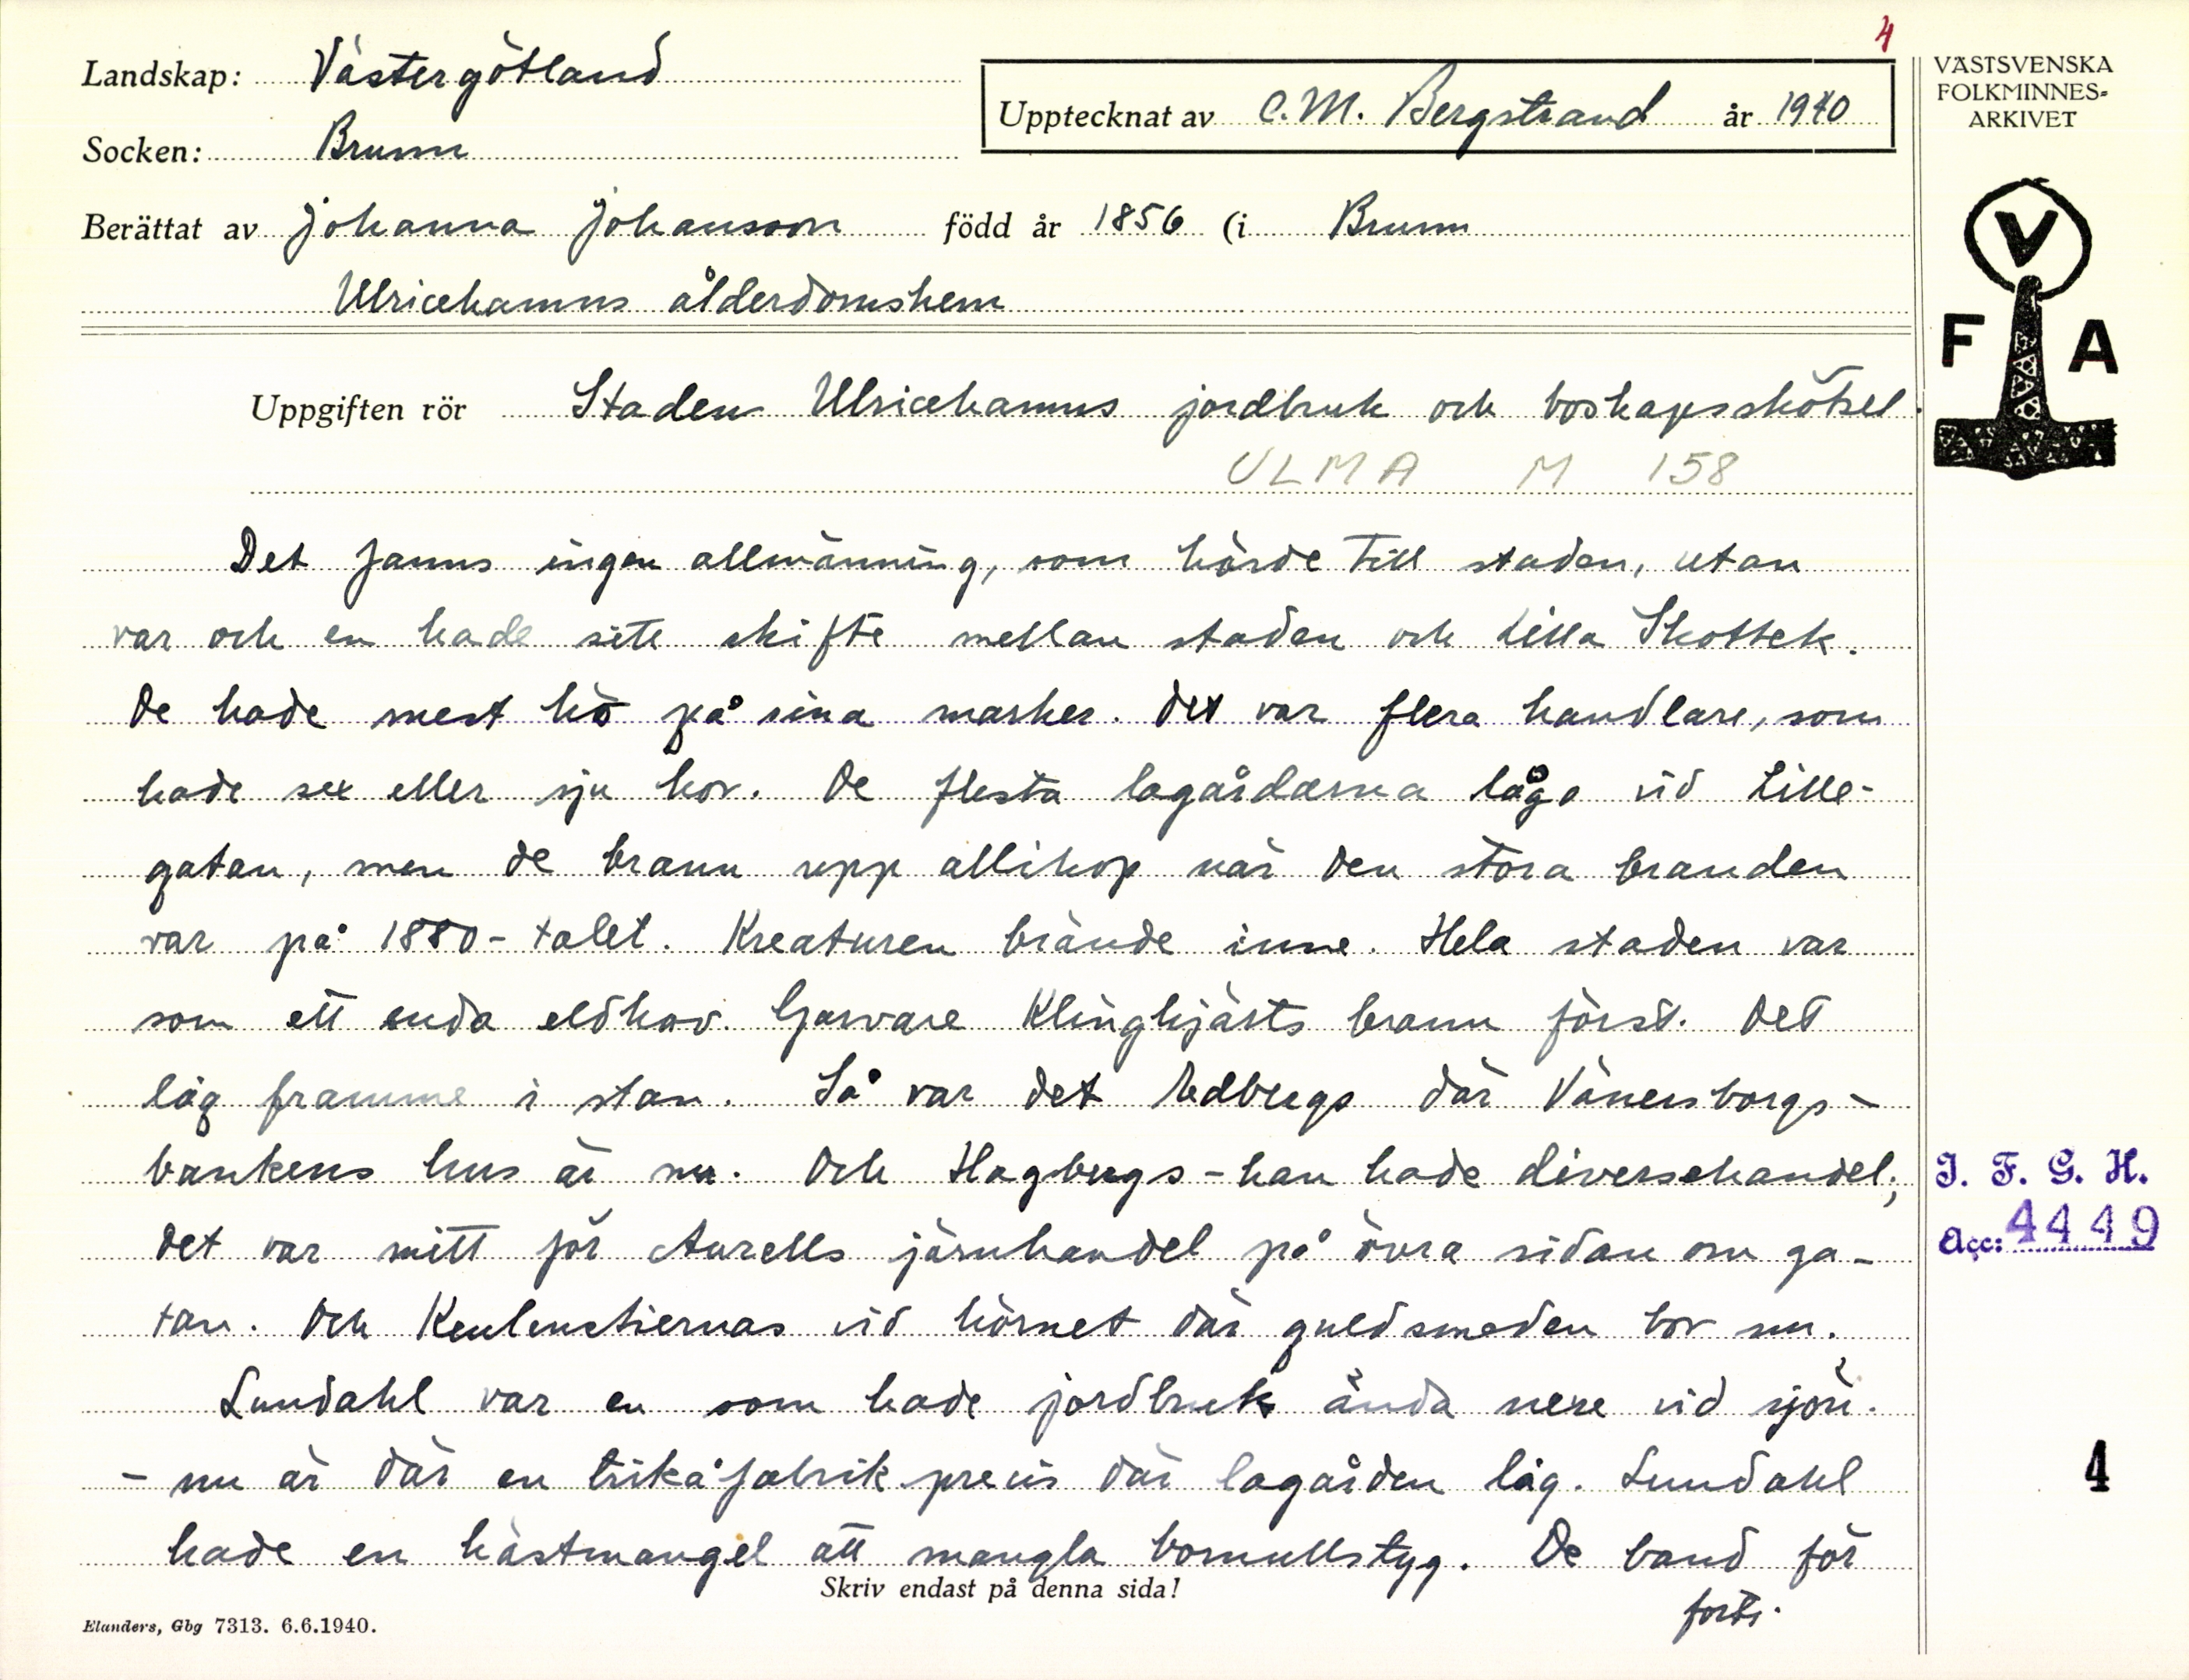 4
Landskap: Västergötland
Upptecknat av C.M. Bergstrand år 1940
VÄSTSVENSKA
FOLKMINNES-
ARKIVET
Socken: Brunn
Berättat av Johanna Johansson född år 1856 (i Brunn
Ulricehamns ålderdomshem
V
F A
Uppgiften rör Staden Ulricehamns jordbruk och boskapsskötsel.
ULMA M 158
Det fanns ingen allmänning, som hörde till staden, utan
var och en hade sitt skifte mellan staden och Lilla Skottek.
De hade mest hö på sina marker. Det var flera handlare, som
hade sex eller sju kor. De flesta lagårdarna låga vid Lille-
gatan, men de brann upp allihop när den stora branden
var på 1880-talet. Kreaturen brände inne. Hela staden var
som ett enda eldhav. Garvare Klinghjärts brann först. Det
låg framme i stan. Så var det Edbergs där Vänersborgs-
bankens hus är nu. Och Hagbergs - han hade diversehandel;
det var mitt för Aurells järnhandel på övra sidan om ga-
tan. Och Keulenstiernas vid hörnet där guldsmeden bor nu.
Lundahl var en som hade jordbruk ända nere vid sjön.
- nu är där en trikåfabrik precis där lagården låg. Lundahl
hade en hästmangel att mangla bomullstyg. De band för
forts.
I. F. G. H.
Acc: 4449
4
Skriv endast på denna sida!
Elanders, Gbg 7313. 6.6.1940.